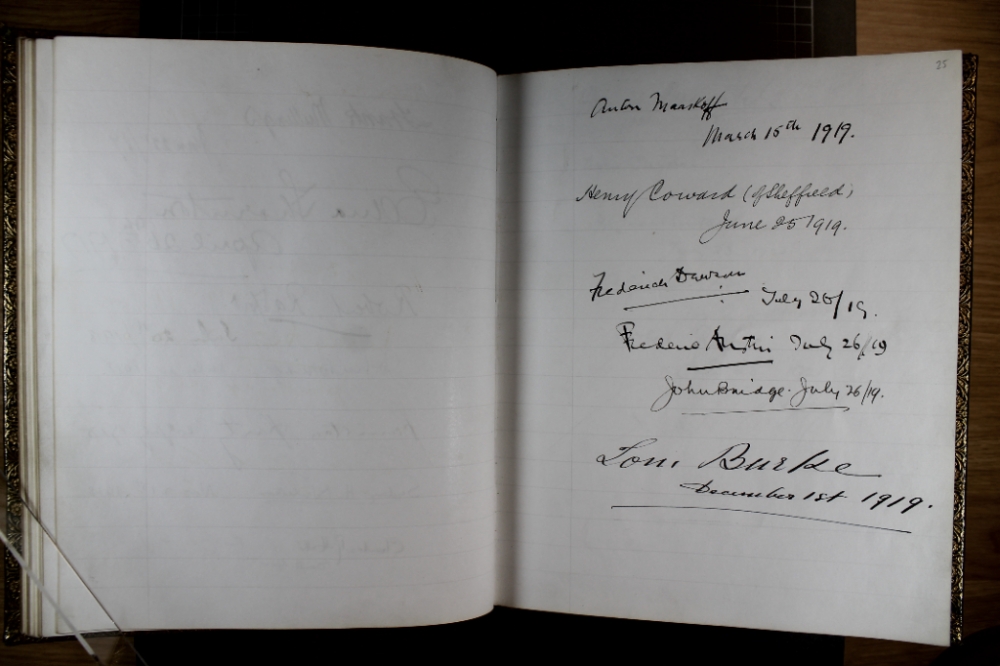 25
Anton Maaskoff
March 15th 1919.
Henry Coward (of Sheffield)
June 25 1919.
Frederick Dawson
July 26/19.
Frederic Austin July 26/19
John Bridge. July 26/19.
Tom Burke
December 1st 1919.